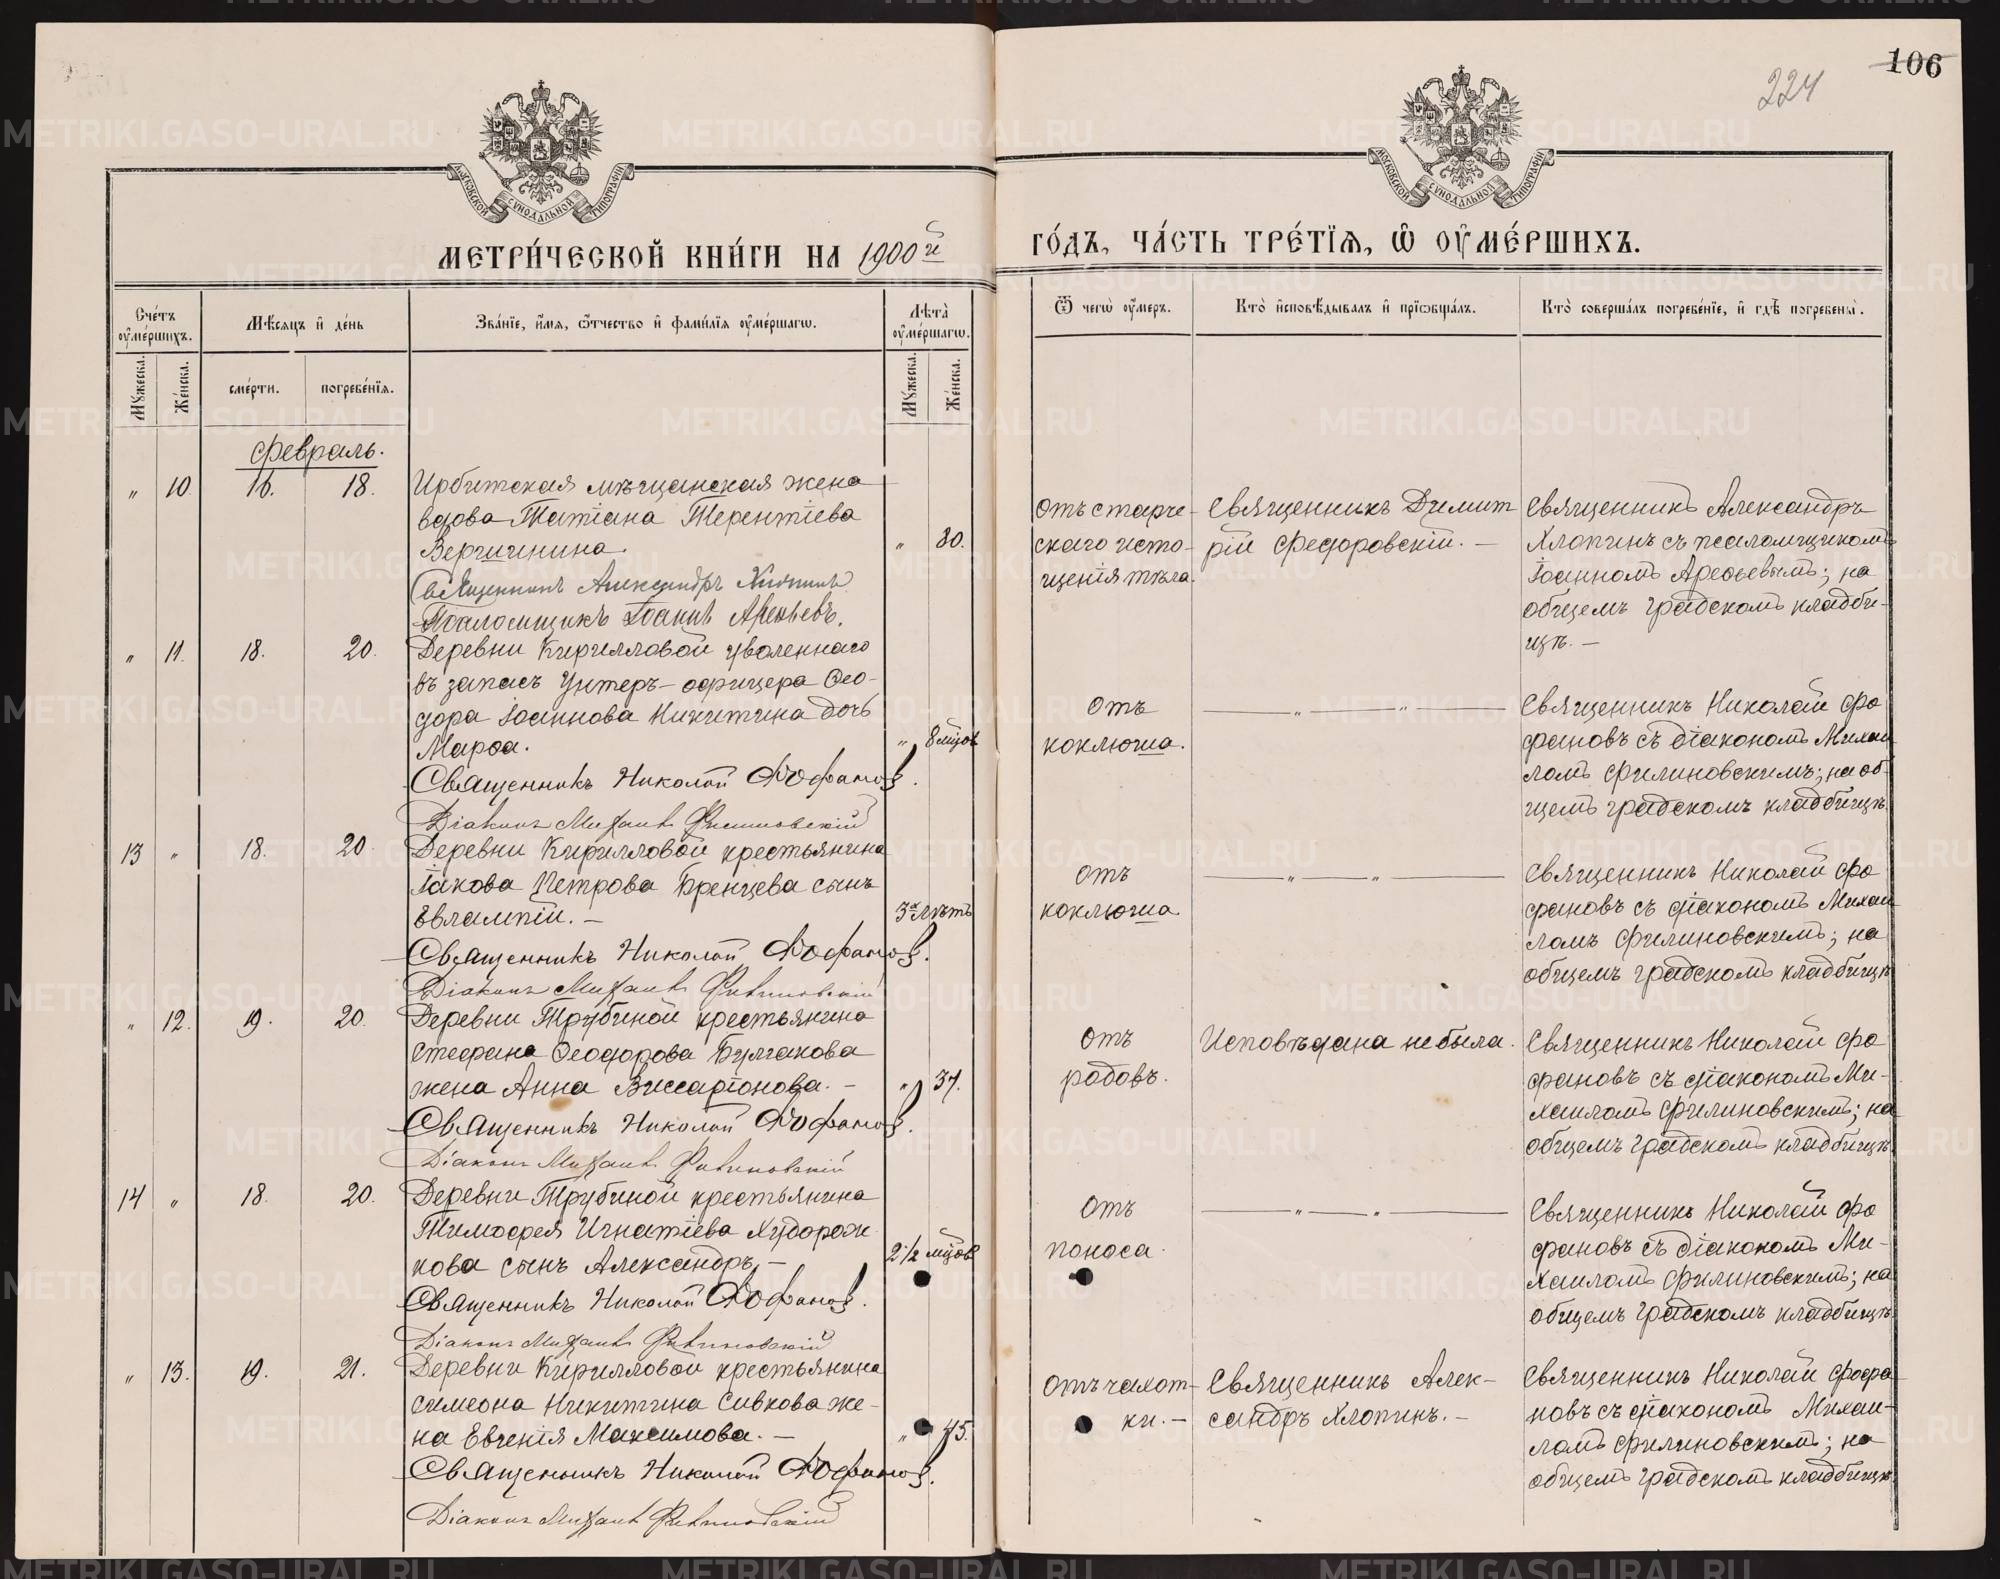 106
224
МОСКОВСКОЙ СУНОДАЛЬНОЙ ТИПОГРАФІИ
МОСКОВСКОЙ СУНОДАЛЬНОЙ ТИПОГРАФІИ
МЕТРИ́ЧЕСКОЙ КНИ́ГИ НА 1900й
ГО́ДЪ, ЧА́СТЬ ТРЕ́ТІѦ, Ѡ҆ ОУ҆МЕ́РШИХЪ.
Сче́тъ оу҆ме́ршихъ.
Мѣ́сѧцъ и҆ де́нь
Зва́нїе, и҆́мѧ, ѻ҆́тчество и҆ фами́лїѧ оу҆ме́ршагѡ.
Лѣ́та оу҆ме́ршагѡ.
Ѿ чегѡ̀ оу҆́меръ.
Кто̀ и҆сповѣ́дывалъ и҆ прїѡбща́лъ.
Кто̀ соверша́лъ погребе́нїе, и҆ гдѣ̀ погребены̀.
Мꙋ́жеска.
Же́нска.
сме́рти.
погребе́нїѧ.
Мꙋ́жеска.
Же́нска.
Февраль.
" 10. 16. 18. Ирбитская мѣщанская жена
вдова Татіана Терентіева
Вершинина. " 80.
Священникъ Александръ Хлопинъ
Псаломщикъ Іоаннъ Арефьевъ.
отъ старче-
скаго исто-
щенія тѣла.
Священникъ Димит
рій Федоровскій. –
Священникъ Александръ
Хлопинъ съ псаломщикомъ
Іоанномъ Арефьевымъ; на
общемъ градскомъ кладби-
щѣ. –
" 11. 18. 20. Деревни Кирилловой уволеннаго
въ запасъ унтеръ-офицера Ѳео-
дора Іоаннова Никитина дочь
Марѳа. " 8 мцов
Священникъ Николай Фофановъ.
Діаконъ Михаилъ Филиновскій
отъ
коклюша.
" "
Священникъ Николай Фо
фановъ съ діакономъ Михаи
ломъ Филиновскимъ; на об-
щемъ градскомъ кладбищѣ.
13 " 18. 20. Деревни Кирилловой крестьянина
Іакова Петрова Бренцева сынъ
Евлампій. – 3х лѣтъ
Священникъ Николай Фофановъ.
Діаконъ Михаилъ Филиновскій
отъ
коклюша
" "
Священникъ Николай Фо
фановъ съ діакономъ Михаи
ломъ Филиновскимъ; на
общемъ градскомъ кладбищѣ
" 12. 19. 20. Деревни Трубиной крестьянина
Стефана Ѳеодорова Булгакова
жена Анна Виссаріонова. – " 37.
Священникъ Николай Фофановъ.
Діаконъ Михаилъ Филиновскій
отъ
родовъ.
Исповѣдана не была.
Священникъ Николай Фо
фановъ съ діакономъ Ми-
хаиломъ Филиновскимъ; на
общемъ градскомъ кладбищѣ.
14 " 18. 20. Деревни Трубиной крестьянина
Тимоѳея Игнатіева Худорож
кова сынъ Александръ. – 2 1/2 мцов
Священникъ Николай Фофановъ.
Діаконъ Михаилъ Филиновскій
отъ
поноса.
" "
Священникъ Николай Фо
фановъ съ діакономъ Ми-
хаиломъ Филиновскимъ; на
общемъ градскомъ кладбищѣ.
" 13. 19. 21. Деревни Кирилловой крестьянина
Симеона Никитина Сивкова же-
на Евгенія Максимова. – " 45.
Священникъ Николай Фофановъ.
Діаконъ Михаилъ Филиновскій
отъ чахот-
ки. –
Священникъ Алек-
сандръ Хлопинъ. –
Священникъ Николай Фофа
новъ съ діакономъ Михаи-
ломъ Филиновскимъ; на
общемъ градскомъ кладбищѣ.
METRIKI.GASO-URAL.RU